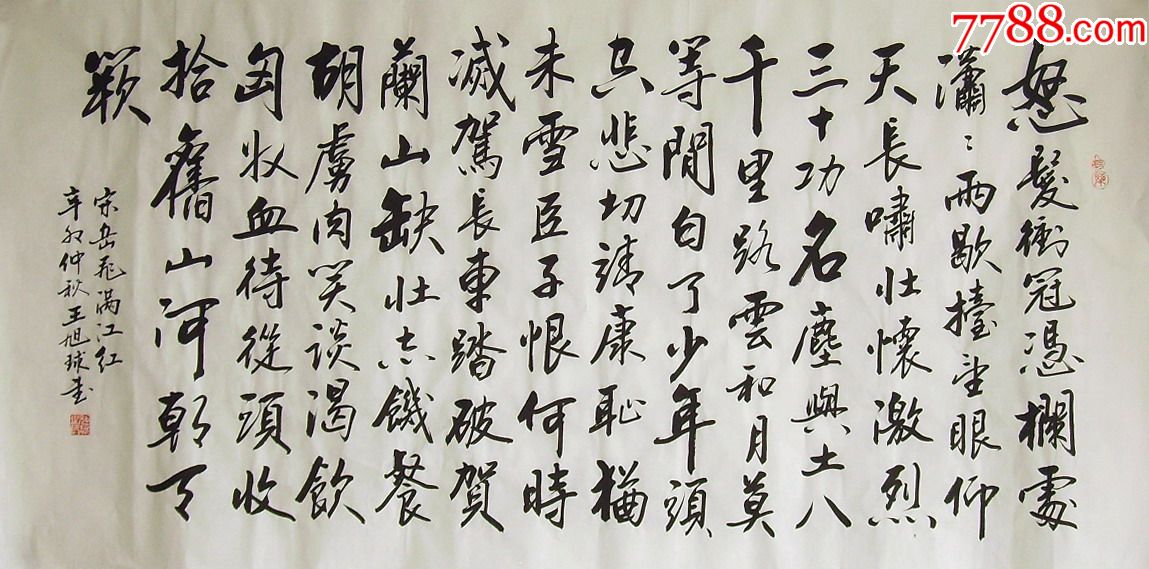 7788.com
怒髮衝冠憑欄處
瀟〻雨歇擡望眼仰
天長嘯壯懷激烈
三十功名塵與土八
千里路雲和月莫
等閒白了少年頭
空悲切靖康恥猶
未雪臣子恨何時
滅駕長車踏破賀
蘭山缺壯志饑餐
胡虜肉笑談渴飲
匈奴血待從頭收
拾舊山河朝天
闕
宋岳飛滿江红
辛卯仲秋王旭球書